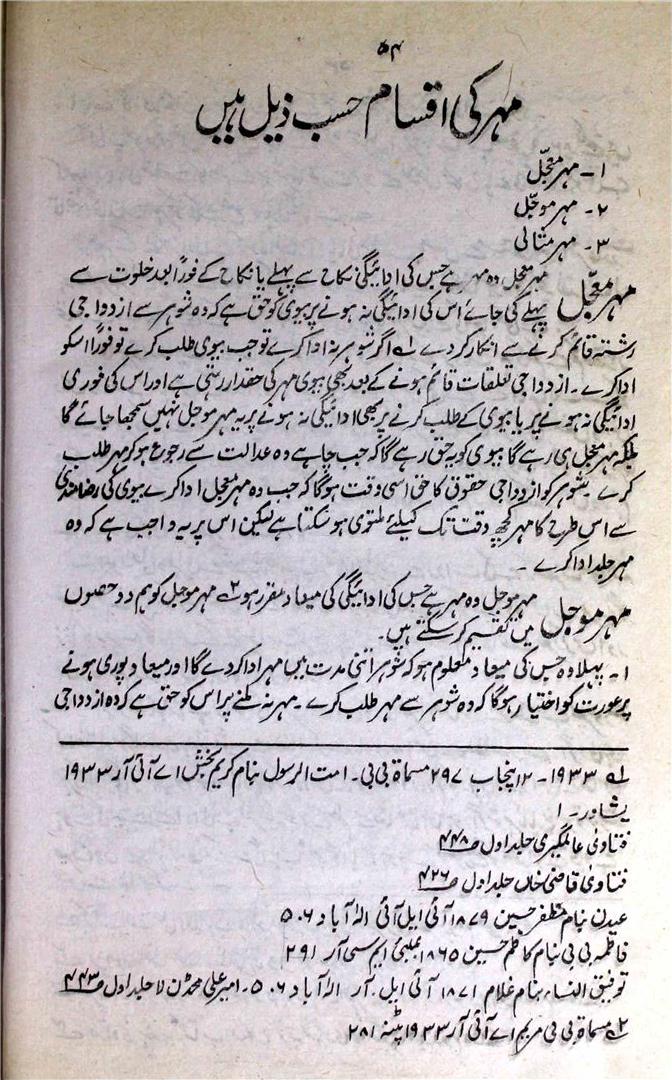 ۵۴
مہر کی اقسام حسب ذیل ہیں
۱۔ مہر معجّل
۲۔ مہر موجّل
۳۔ مہر مثالی
مہر معجّل مہر معجل وہ مہر ہے جس کی ادائیگی نکاح سے پہلے یا نکاح کے فوراً بعد خلوت سے
پہلے کی جائے اس کی ادائیگی نہ ہونے پر بیوی کو حق ہے کہ وہ شوہر سے ازدواجی
رشتہ قائم کرنے سے انکار کر دے ۱؎ اگر شوہر نہ ادا کرے تو جب بیوی طلب کرے تو فوراً اسکو
ادا کرے۔ ازدواجی تعلقات قائم ہونے کے بعد بھی بیوی مہر کی حقدار رہتی ہے اور اس کی فوری
ادائیگی نہ ہونے پر یا بیوی کے طلب کرنے پر بھی ادائیگی نہ ہونے پر یہ مہر موجل نہیں سمجھا جائے گا
بلکہ مہر معجل ہی رہے گا بیوی کو یہ حق رہے گا کہ جب چاہے وہ عدالت سے رجوع ہو کر مہر طلب
کرے۔ شوہر کو ازدواجی حقوق کا حق اسی وقت ہوگا کہ جب وہ مہر معجل ادا کرے بیوی کی رضامندی
سے اس طرح کا مہر کچھ وقت تک کیلئے ملتوی ہو سکتا ہے لیکن اس پر یہ واجب ہے کہ وہ
مہر جلد ادا کرے۔
مہر موجل مہر موجل وہ مہر ہے جس کی ادائیگی کی میعاد مقرر ہو ۲؎ مہر موجل کو ہم دو حصوں
میں تقسیم کر سکتے ہیں۔
۱۔ پہلا وہ جس کی میعاد معلوم ہو کہ شوہر اتنی مدت میں مہر ادا کر دے گا اور میعاد پوری ہونے
پر عورت کو اختیار ہوگا کہ وہ شوہر سے مہر طلب کرے۔ مہر نہ ملنے پر اس کو حق ہے کہ وہ ازدواجی
۱؎ ۱۹۳۳۔ ۱۲ پنجاب ۲۹۷ مسماۃ بی بی۔ امت الرسول بنام کریم بخش اے آئی آر ۱۹۳۳
پشاور۔ ۱
فتاویٰ عالمگیری جلد اول ص۴۴۸
فتاویٰ قاضی خاں جلد اول ص۴۲۶
عیدن بنام مظفر حسین ۱۸۷۹ آئی ایل آئی الہ آباد ۵۰۶
فاطمہ بی بی بنام کاظم حسین ۱۸۶۵ بمبئی ایم سی آر ۲۹۱
توفیق النساء بنام غلام ۱۸۷۱ آئی ایل۔ آر۔ الہ آباد ۵۰۶۔ امیر علی محمڈن لا جلد اول ص۴۴۳
۲؎ مسماۃ بی بی مریم اے آئی آر ۱۹۳۳ پٹنہ ۲۸۱